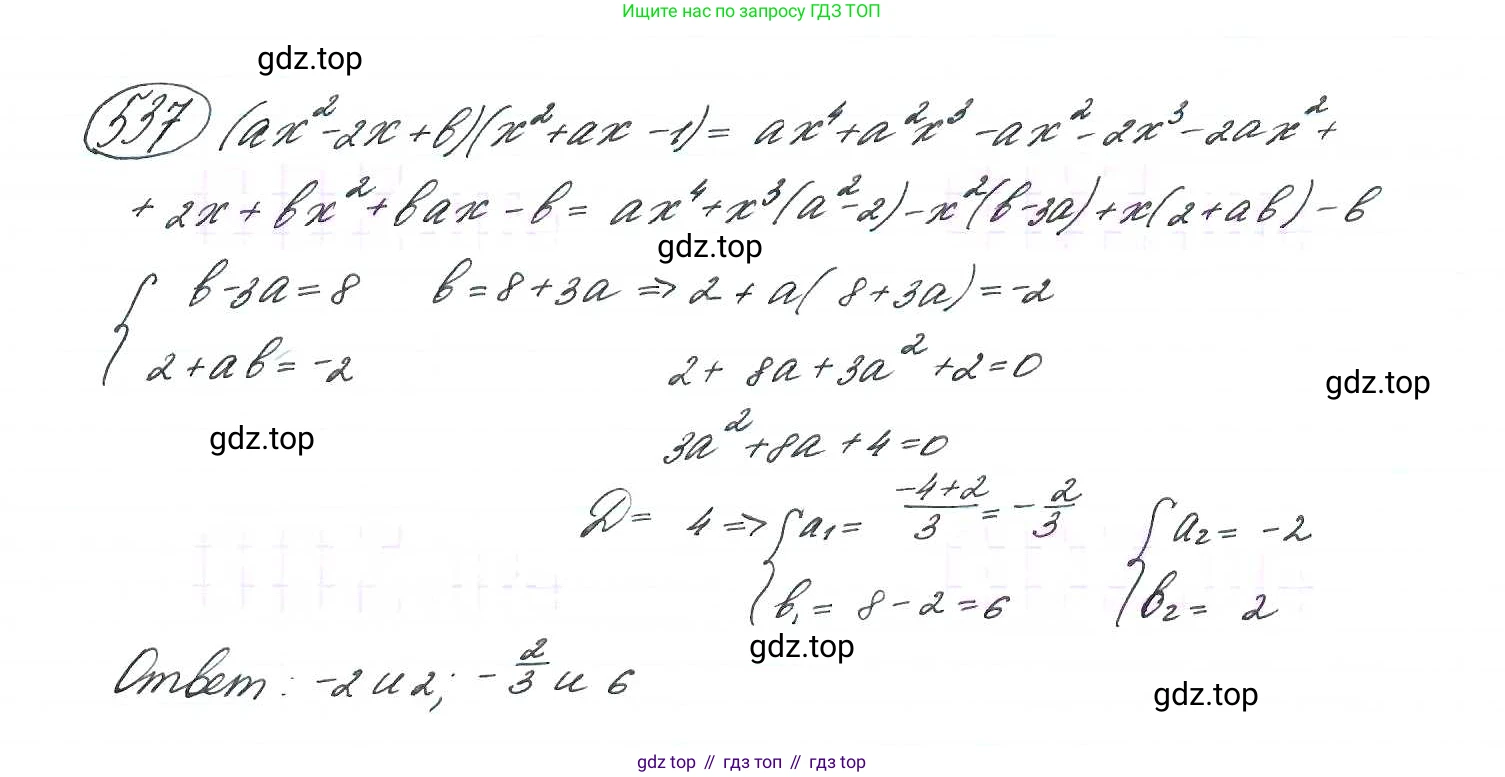 Ищите нас по запросу ГДЗ ТОП
gdz.top
537 (ax²-2x+в)(x²+ax-1)= ax⁴+a²x³-ax²-2x³-2ax²+
+2x+вx²+вax-в= ax⁴+x³(a²-2)-x²(в-3a)+x(2+aв)-в
gdz.top
{ в-3a=8 в=8+3a => 2+a(8+3a)=-2
2+aв=-2 2+8a+3a²+2=0
gdz.top
gdz.top
3a²+8a+4=0
D= 4 => { a₁= (-4+2)/3 = -2/3 { a₂= -2
в₁= 8-2=6 в₂= 2
gdz.top
Ответ: -2 и 2; -2/3 и 6
gdz.top
gdz top // гдз топ // gdz top